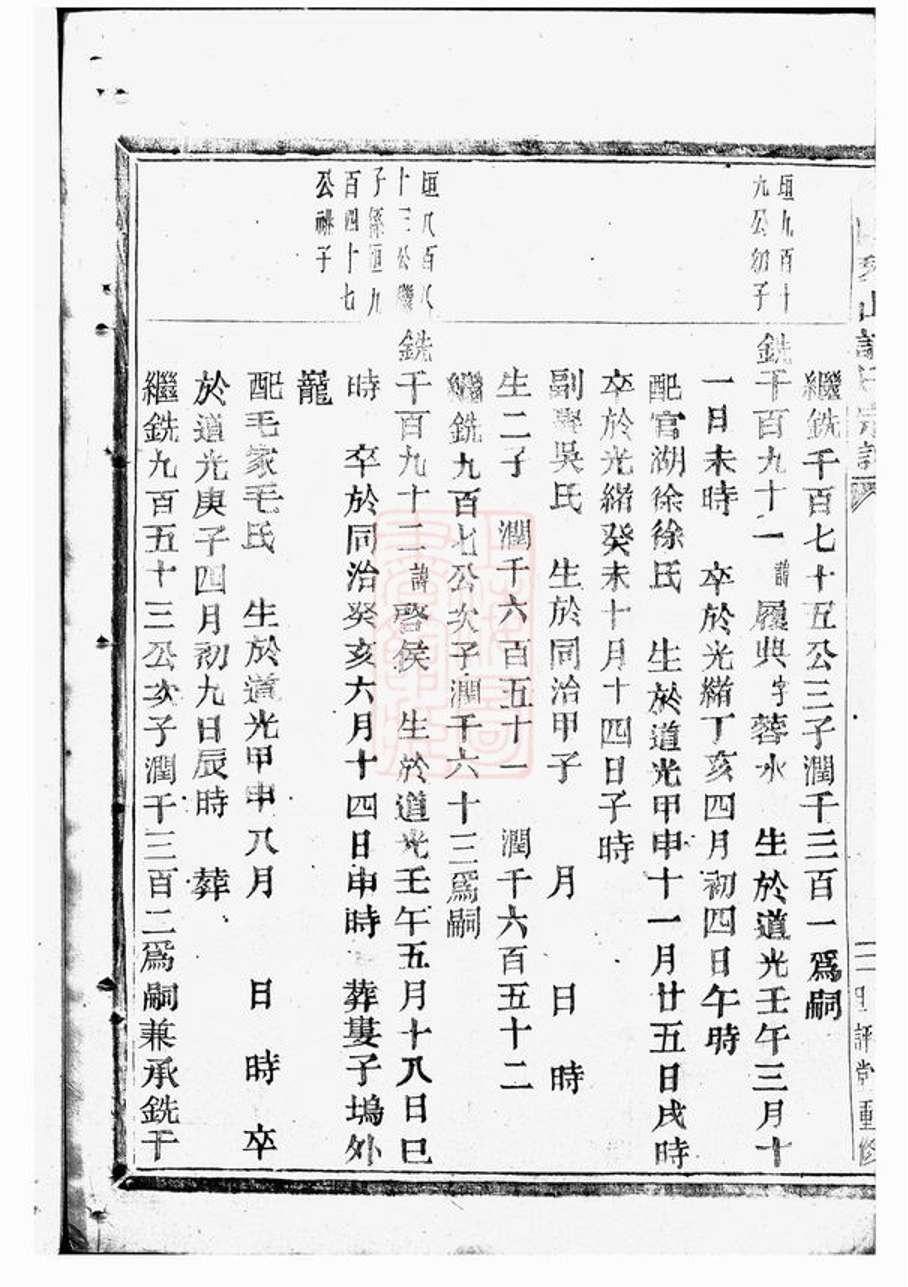 繼銑千百七十五公三子潤千三百一爲嗣
垣九百十
九公幼子
銑千百九十一諱履典字蓉水　生於道光壬午三月十
一日未時　卒於光緒丁亥四月初四日午時
配官湖徐徐氏　生於道光甲申十一月廿五日戌時
卒於光緒癸未十月十四日子時
副室吳氏　生於同治甲子　月　日　時
生二子　潤千六百五十一　潤千六百五十二
繼銑九百七公次子潤千六十三爲嗣
垣八百八
十三公繼
子係垣九
百四十七
公祧子
銑千百九十二諱啓侯　生於道光壬午五月十八日巳
時　卒於同治癸亥六月十四日申時　葬婁子塢外
龍
配毛家毛氏　生於道光甲申八月　日　時　卒
於道光庚子四月初九日辰時　葬
繼銑九百五十三公次子潤千三百二爲嗣兼承銑千